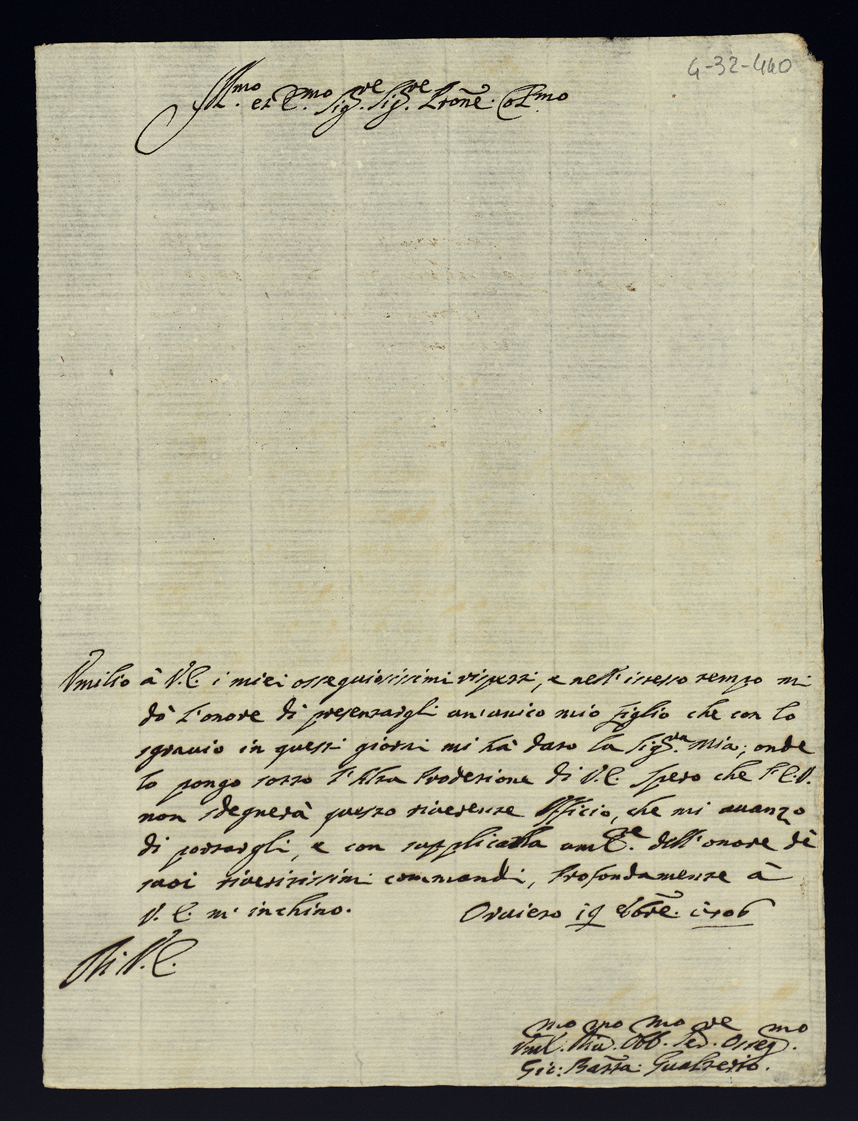 4-32-440
Ill.mo et E.mo Sig.re Sig.re Prone. Col.mo
Umilio à V.E. i miei ossequiosissimi rispetti, e nell'istesso tempo mi
dò l'onore di presentargli un'unico mio figlio che con lo
sgravio in questi giorni mi hà dato la Sig.ra Mia; onde
lo pongo sotto l'Alta Protezione di V.E. spero che l'E.V.
non sdegnerà questo riverente Officio, che mi avanzo
di portargli, e con supplicarla um.te dell'onore de
suoi riveritissimi commandi, Profondamente à
V.E. m'inchino. Orvieto 19 Xbre. 1706
Di V.E.
Uml.mo Obb.mo Osseq.mo
Gio: Batta: Gualterio.